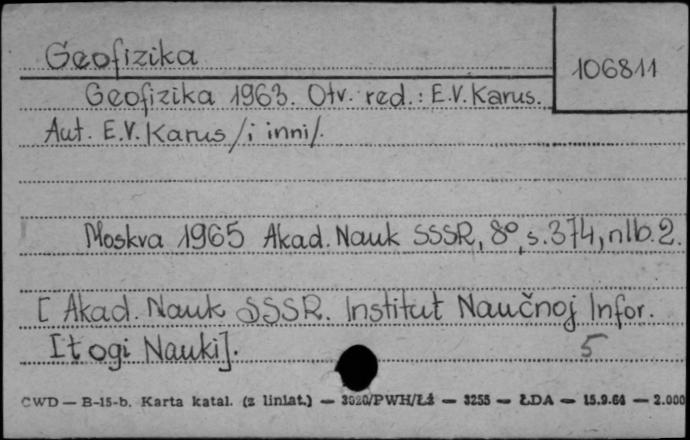 Geofizika
106811
Geofizika 1963. Otv. red.: E.V. Karus.
Aut. E.V. Karus /i inni/.
Moskva 1965 Akad. Nauk SSSR, 8°, s. 374, nlb. 2.
[ Akad. Nauk SSSR. Institut Naučnoj Infor.
Itogi Nauki].
5
CWD — B-15-b. Karta katal. (z liniat.) — 3020/PWH/Łź — 3255 — ŁDA — 15.9.64 — 2.000